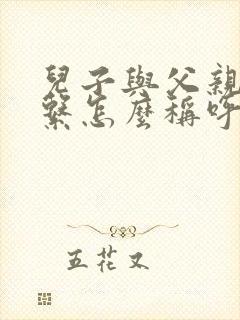 兒子與父親
繫怎麼稱呼
五花又